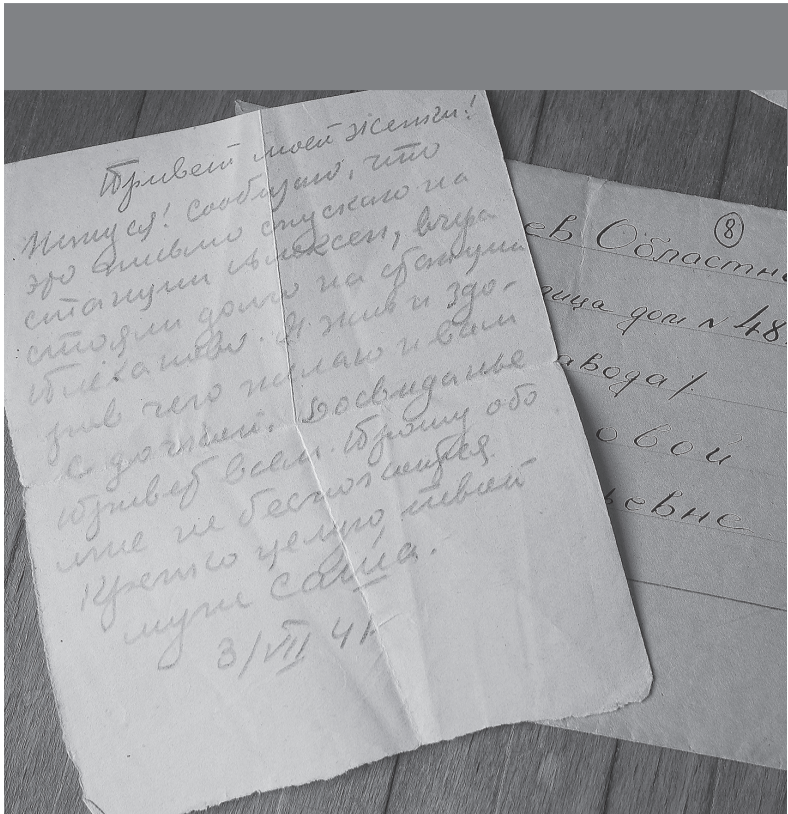 Привет моей Женьги!
Нинуся! Сообщаю, что
это письмо опускаю на
станции Алексен, вчера
стояли долго на станции
Плеханово. Я жив и здо-
ров чего желаю и вам
с дочкой. Досвиданье
Привет всем. Прошу обо
мне не беспокоится.
Крепко целую, твой
муж Саша.
3/VII 41
8
ев Областн
лица дом № 48
авода/.
овой
ьевне